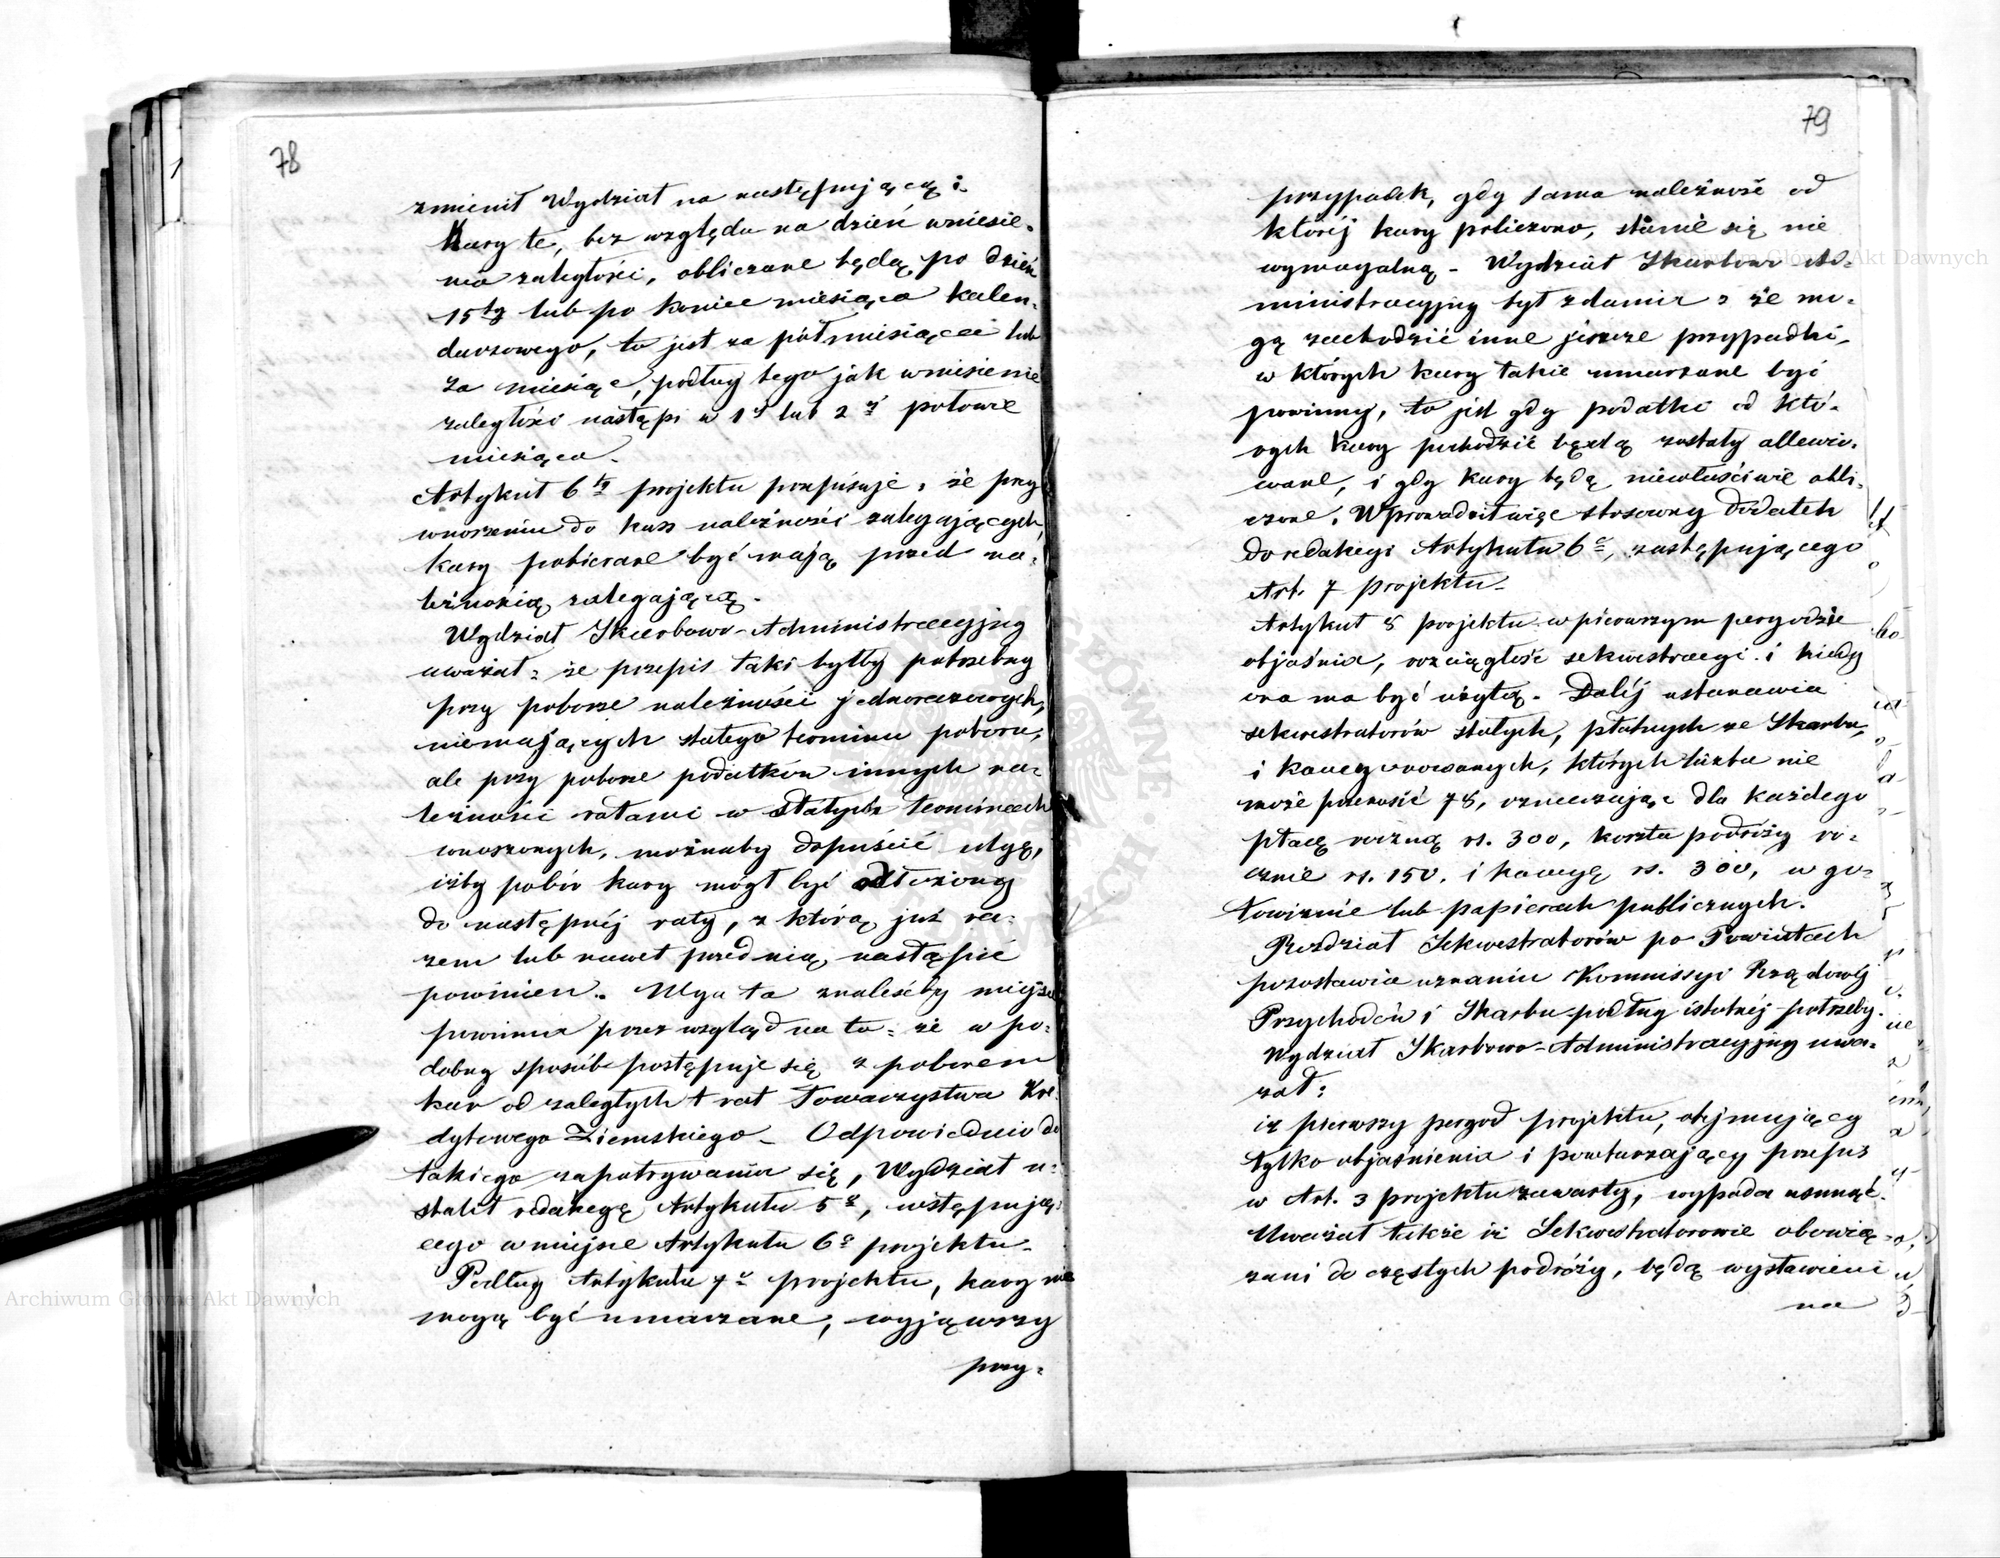 78
zmienił Wydział na następującą:
Kary te, bez względu na dzień wniesie-
nia zaległości, obliczane będą po dzień
15ty lub po koniec miesiąca kalen-
darzowego, to jest za pół miesiąca lub
za miesiąc, podług tego jak wniesienie
zaległości nastąpi w 1éj lub 2éj połowie
miesiąca.
Artykuł 6ty projektu przepisuje, że przy
wnoszeniu do kass należności zalegających,
kary pobierane być mają przed na-
leżnością zalegającą.
Wydział Skarbowo-Administracyjny
uważał: że przepis taki byłby potrzebny
przy poborze należności jednorazowych,
niemających stałego terminu poboru,
ale przy poborze podatków innych na-
leżności ratami w stałych terminach
wnoszonych, możnaby dopuścić ulgę,
iżby pobór kary mógł być odłożony
do następnéj raty, z którą już ra-
zem lub nawet przed nią, nastąpić
powinien. Ulga ta znaleśćby miejsce
powinna przez wzgląd na to: że w po-
dobny sposób postępuje się z poborem
kar od zaległych rat Towarzystwa Kre-
dytowego Ziemskiego. Odpowiednio do
takiego zapatrywania się, Wydział u-
stalił redakcyę Artykułu 5o, wstępują-
cego w miejsce Artykułu 6o projektu.
Podług Artykułu 7o projektu, kary nie
mogą być umarzane, wyjąwszy
przy-
79
przypadek, gdy sama należność od
któréj kary policzono, stanie się nie
wymagalną. Wydział Skarbowo-Ad-
ministracyjny był zdania: że mo-
gą zachodzić inne jeszcze przypadki,
w których kary takie umarzane być
powinny, to jest gdy podatki od któ-
rych kary pochodzić będą zostały allewio-
wane, i gdy kary będą niewłaściwie obli-
czone. Wprowadził więc stosowny dodatek
do redakcyi Artykułu 6o, zastępującego
Art. 7 projektu.
Artykuł 8 projektu w pierwszym peryodzie
objaśnia, rozciągłość sekwestracyi i kiedy
ona ma być użytą. Daléj ustanawia
sekwestratorów stałych, płatnych ze Skarbu,
i kaucyonowanych, których liczba nie
może przenosić 78, oznaczając dla każdego
płacę roczną rs. 300, koszta podróży ro-
cznie rs. 150. i kaucyę rs. 300, w go-
towiznie lub papierach publicznych.
Rozdział Sekwestratorów po Powiatach
pozostawia uznaniu Kommissyi Rządowéj
Przychodów i Skarbu podług istotnéj potrzeby.
Wydział Skarbowo-Administracyjny uwa-
żał:
iż pierwszy peryod projektu, obejmujący
tylko objaśnienia i powtarzający przepis
w Art. 3 projektu zawarty, wypada usunąć.
Uważał także iż Sekwestratorowie obowią-
zani do częstych podróży, będą wystawieni
na
Archiwum Główne Akt Dawnych